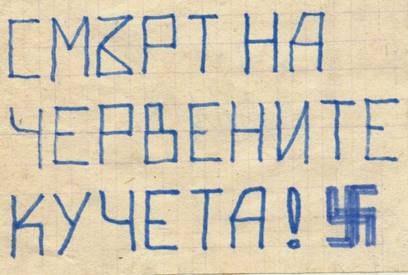 СМЪРТ НА
ЧЕРВЕНИТЕ
КУЧЕТА! 卐